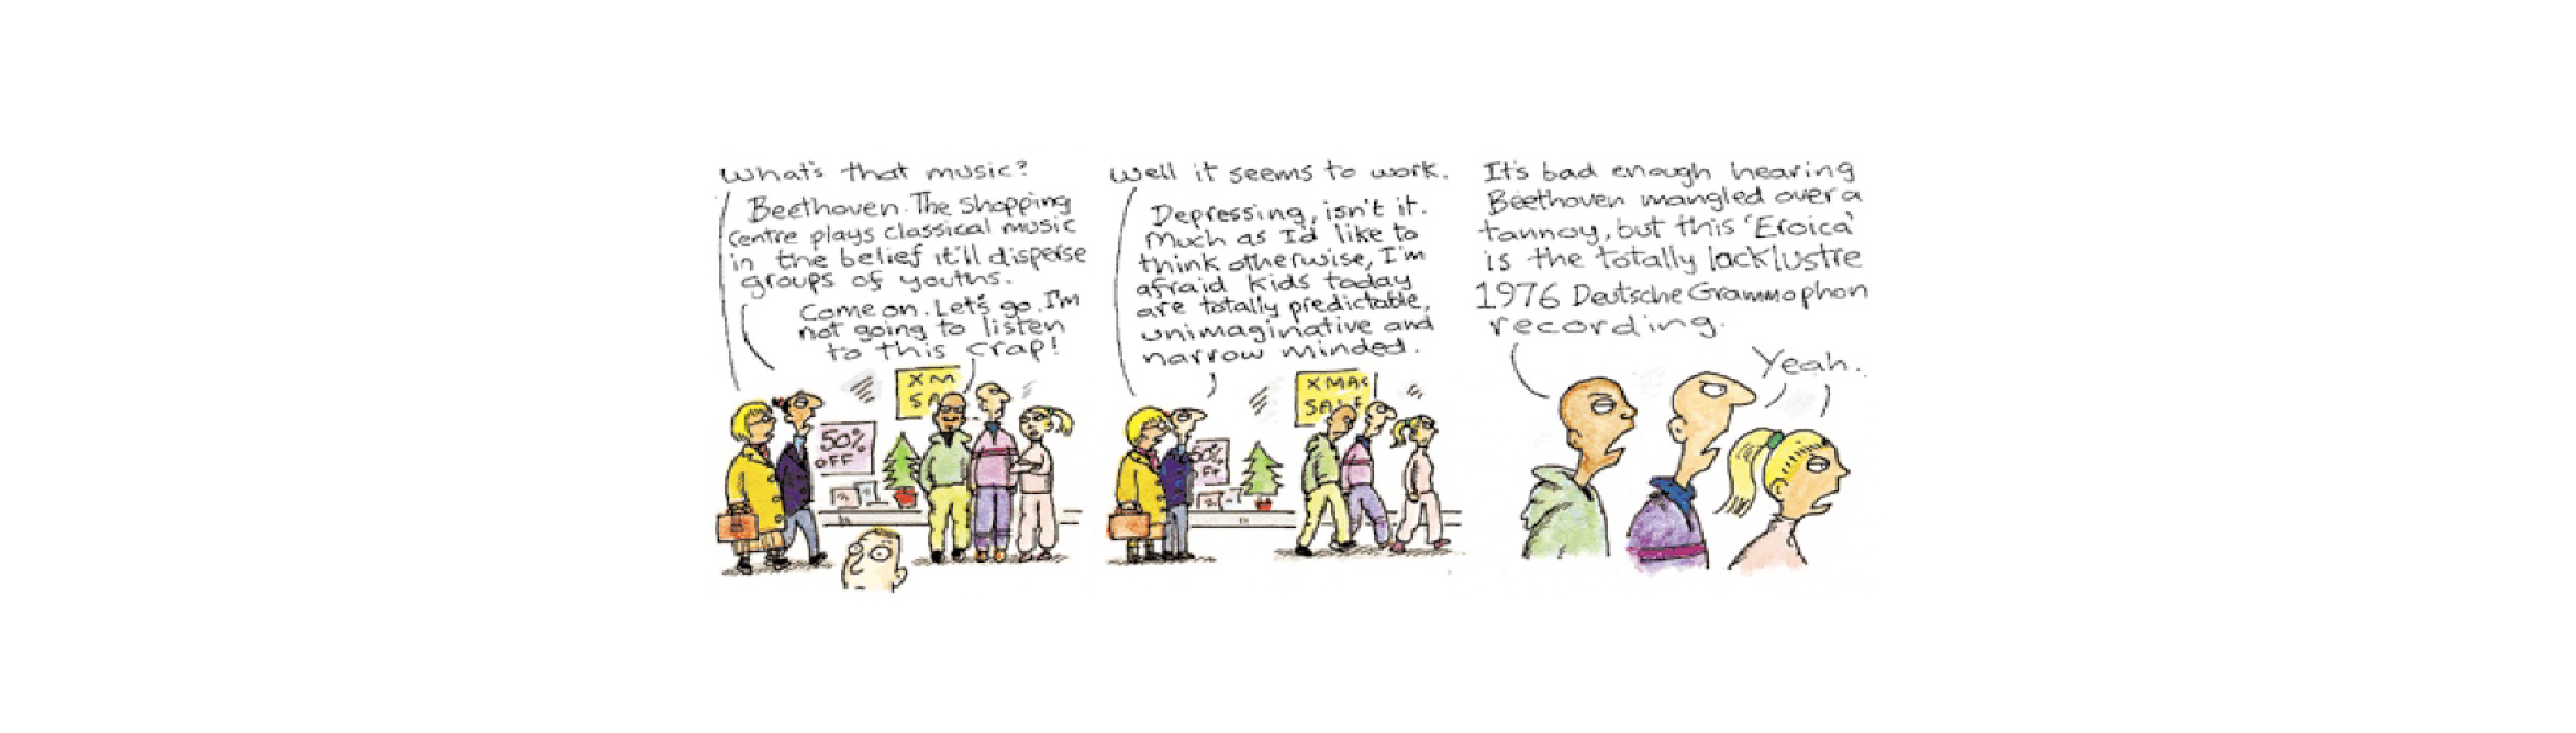 What's that music?
Beethoven. The shopping
centre plays classical music
in the belief it'll disperse
groups of youths.
Come on. Let's go. I'm
not going to listen
to this crap!
50%
OFF
XM
SA
Well it seems to work.
Depressing, isn't it.
Much as I'd like to
think otherwise, I'm
afraid kids today
are totally predictable,
unimaginative and
narrow minded.
50%
OFF
XMAS
SALE
It's bad enough hearing
Beethoven mangled over a
tannoy, but this 'Eroica'
is the totally lacklustre
1976 Deutsche Grammophon
recording.
Yeah.